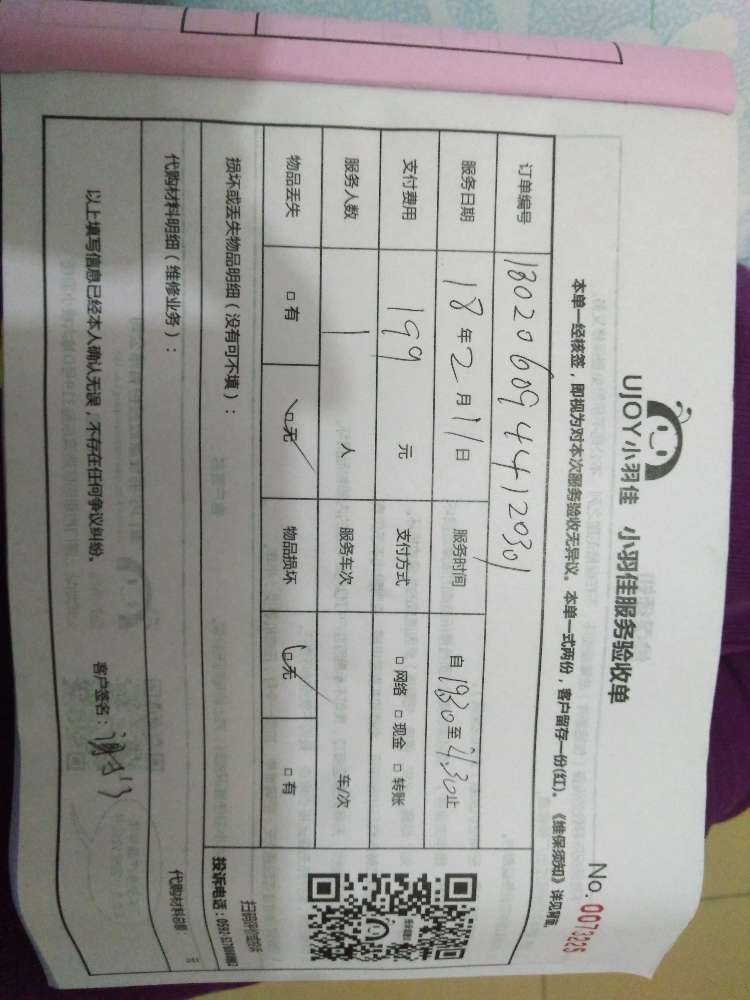 UJOY小羽佳 小羽佳服务验收单
No. 0073225
本单一经核签，即视为对本次服务验收无异议。本单一式两份，客户留存一份(红)。《维保须知》详见背面
订单编号 1802060944120301
服务日期 18年2月11日 服务时间 自 1930至 21.30止
支付费用 199 元 支付方式 □网络 □现金 □转账
服务人数 1 人 服务车次 车/次
物品丢失 □有 □无 物品损坏 □无 □有
扫码评价或投诉
投诉电话：0592-
损坏或丢失物品明细（没有可不填）：
代购材料明细（维修业务）： 代购材料总额： 元
以上填写信息已经本人确认无误，不存在任何争议纠纷。 客户签名：